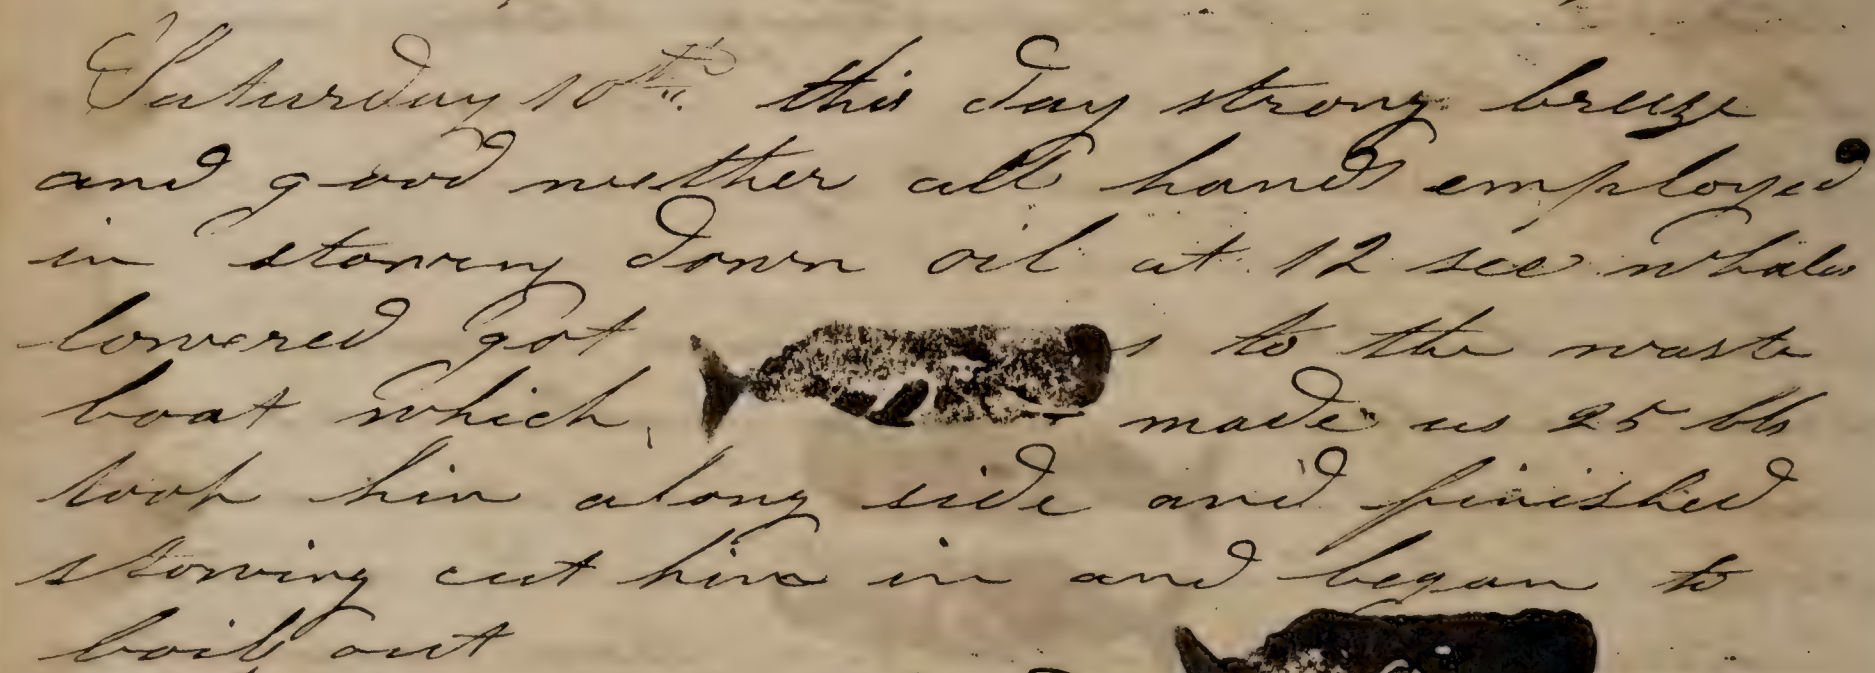 Saturday 10th this day strong breeze
and good wether all hands employed
in stowing down oil at 12 see whales
lowered got s to the waste
boat which made us 25 bbs
took him along side and finished
stowing cut him in and began to
boil out